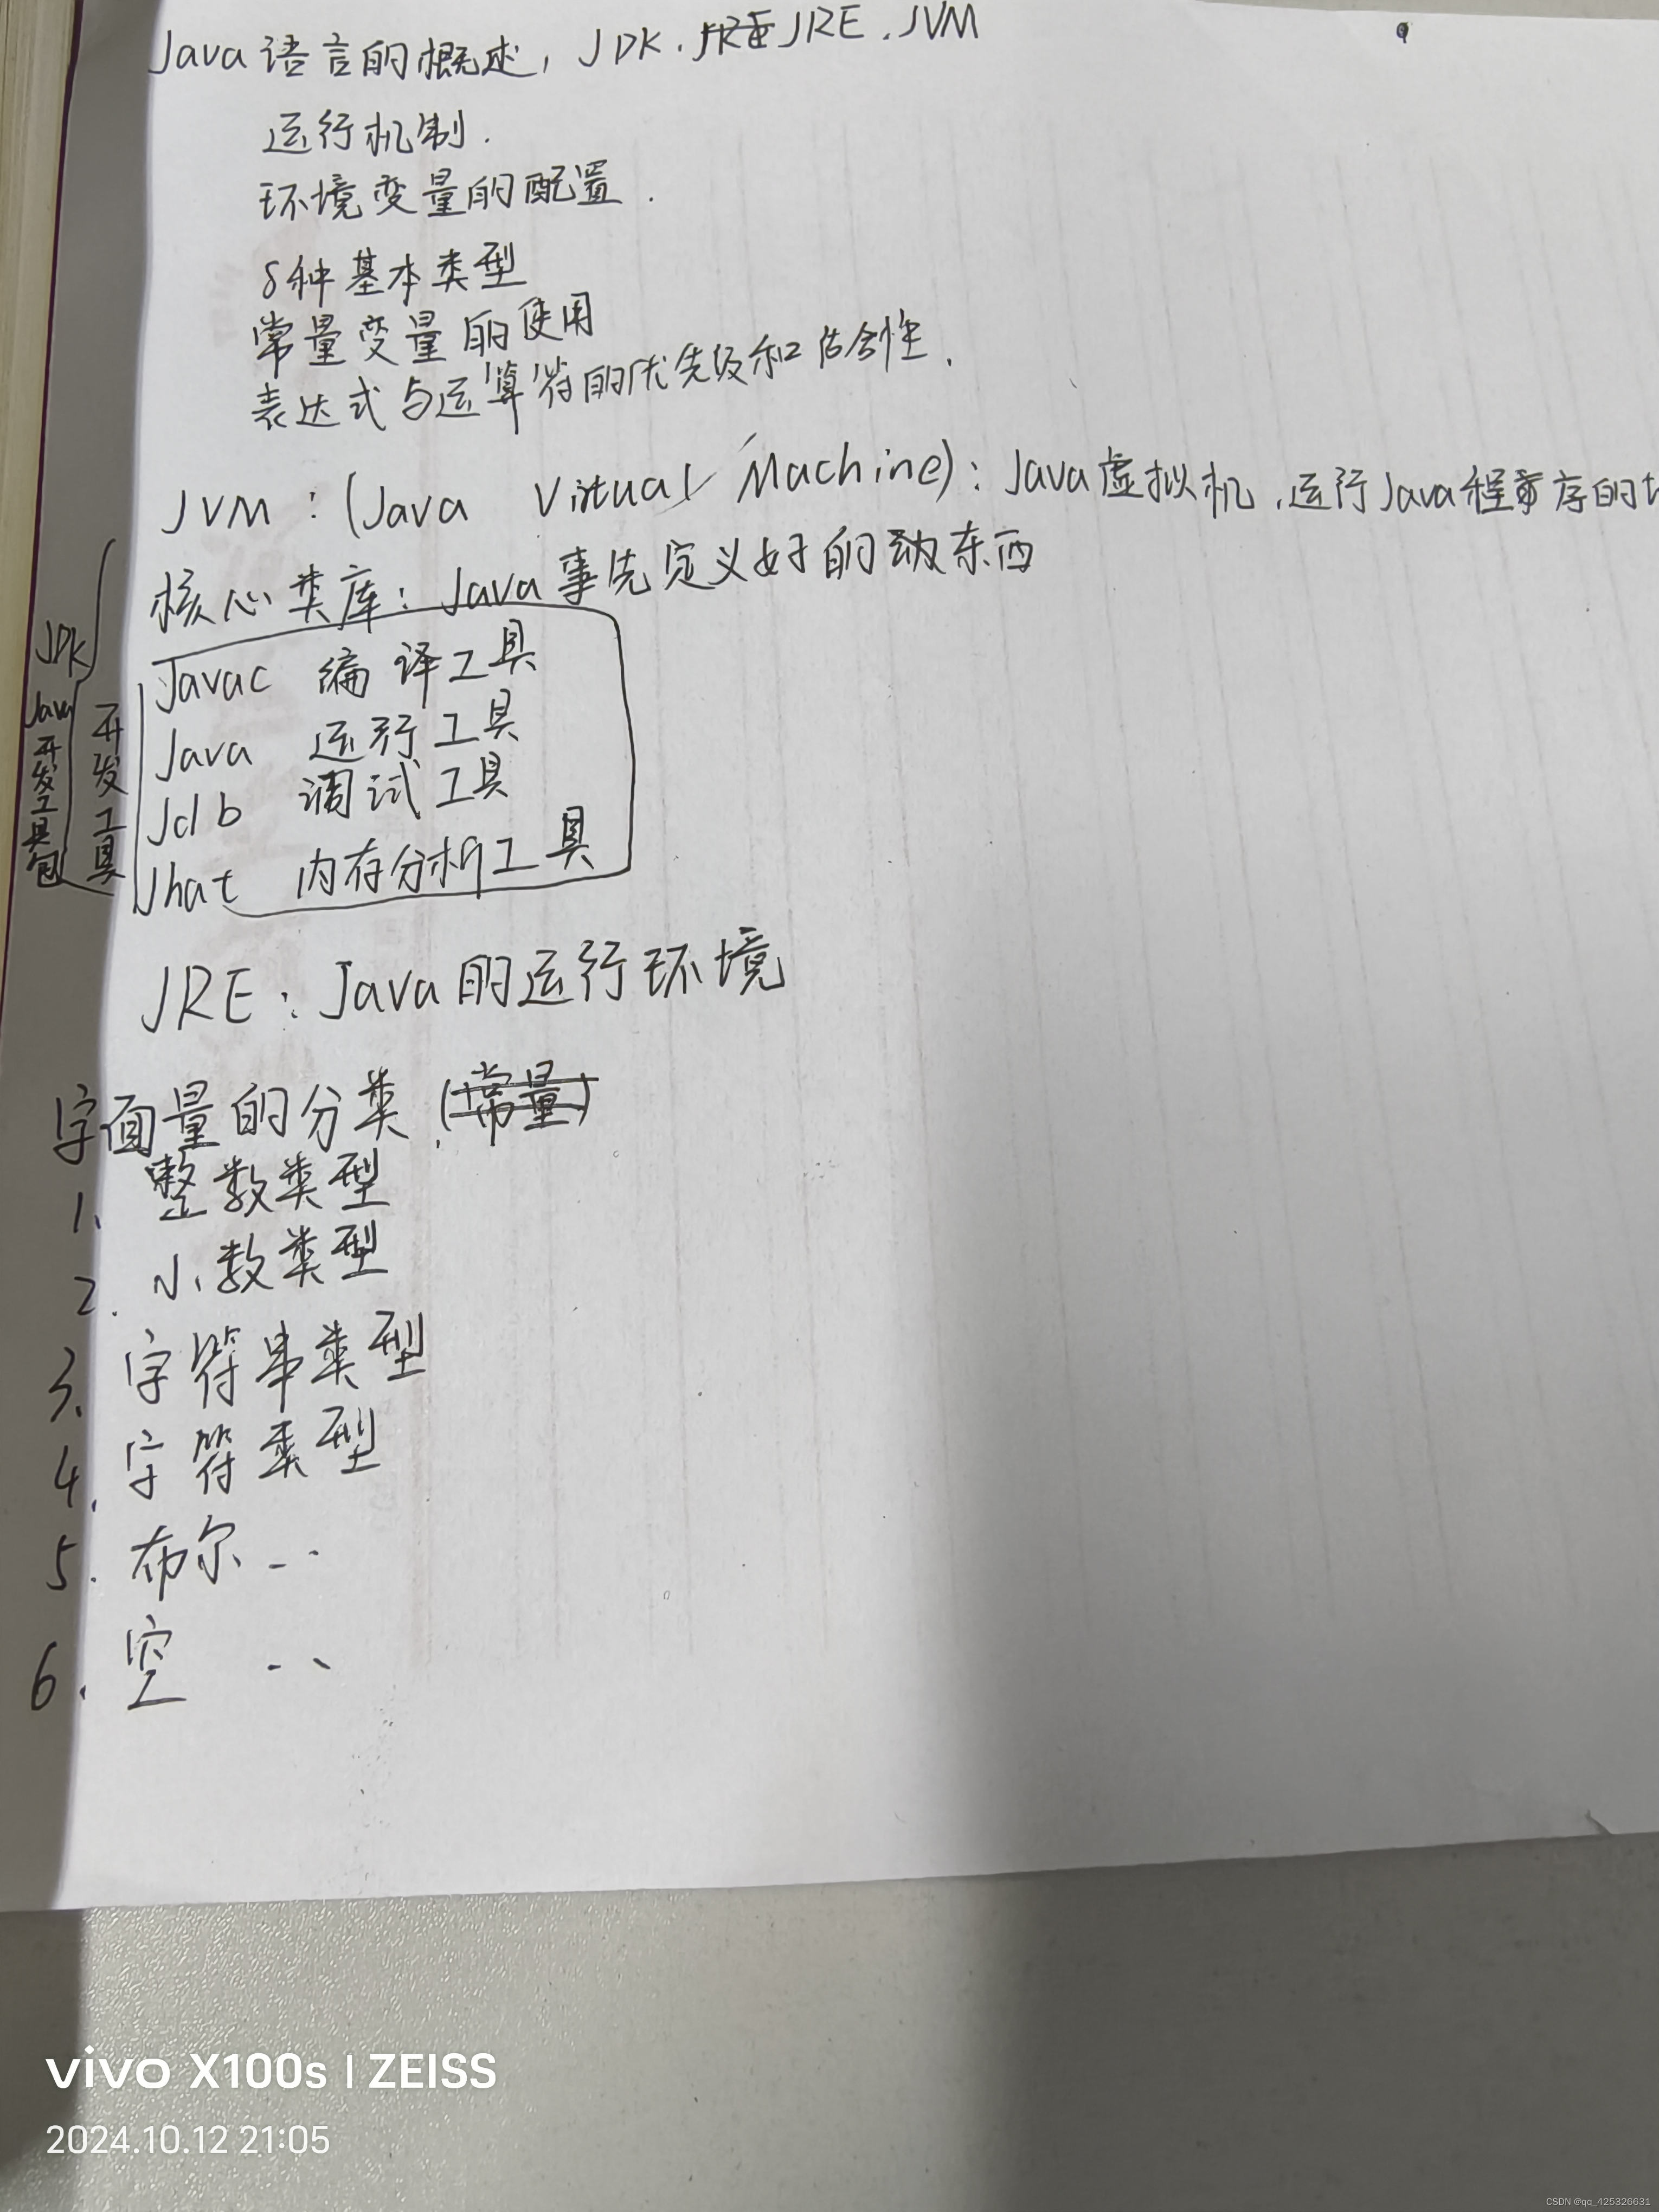 Java语言的概述, JDK. JRE JRE. JVM
运行机制.
环境变量的配置.
8种基本类型
常量变量的使用
表达式与运算符的优先级和结合性.
JVM:(Java Virtual Machine): Java虚拟机,运行Java程序的
核心类库: Java事先定义好的 东西
JDK
Java开发工具包
开发工具
Javac 编译工具
Java 运行工具
Jdb 调试工具
Jhat 内存分析工具
JRE: Java的运行环境
字面量的分类.(常量)
1、整数类型
2. 小数类型
3、字符串类型
4. 字符类型
5. 布尔 --
6. 空 --
vivo X100s | ZEISS
2024.10.12 21:05
CSDN @qq_425326631